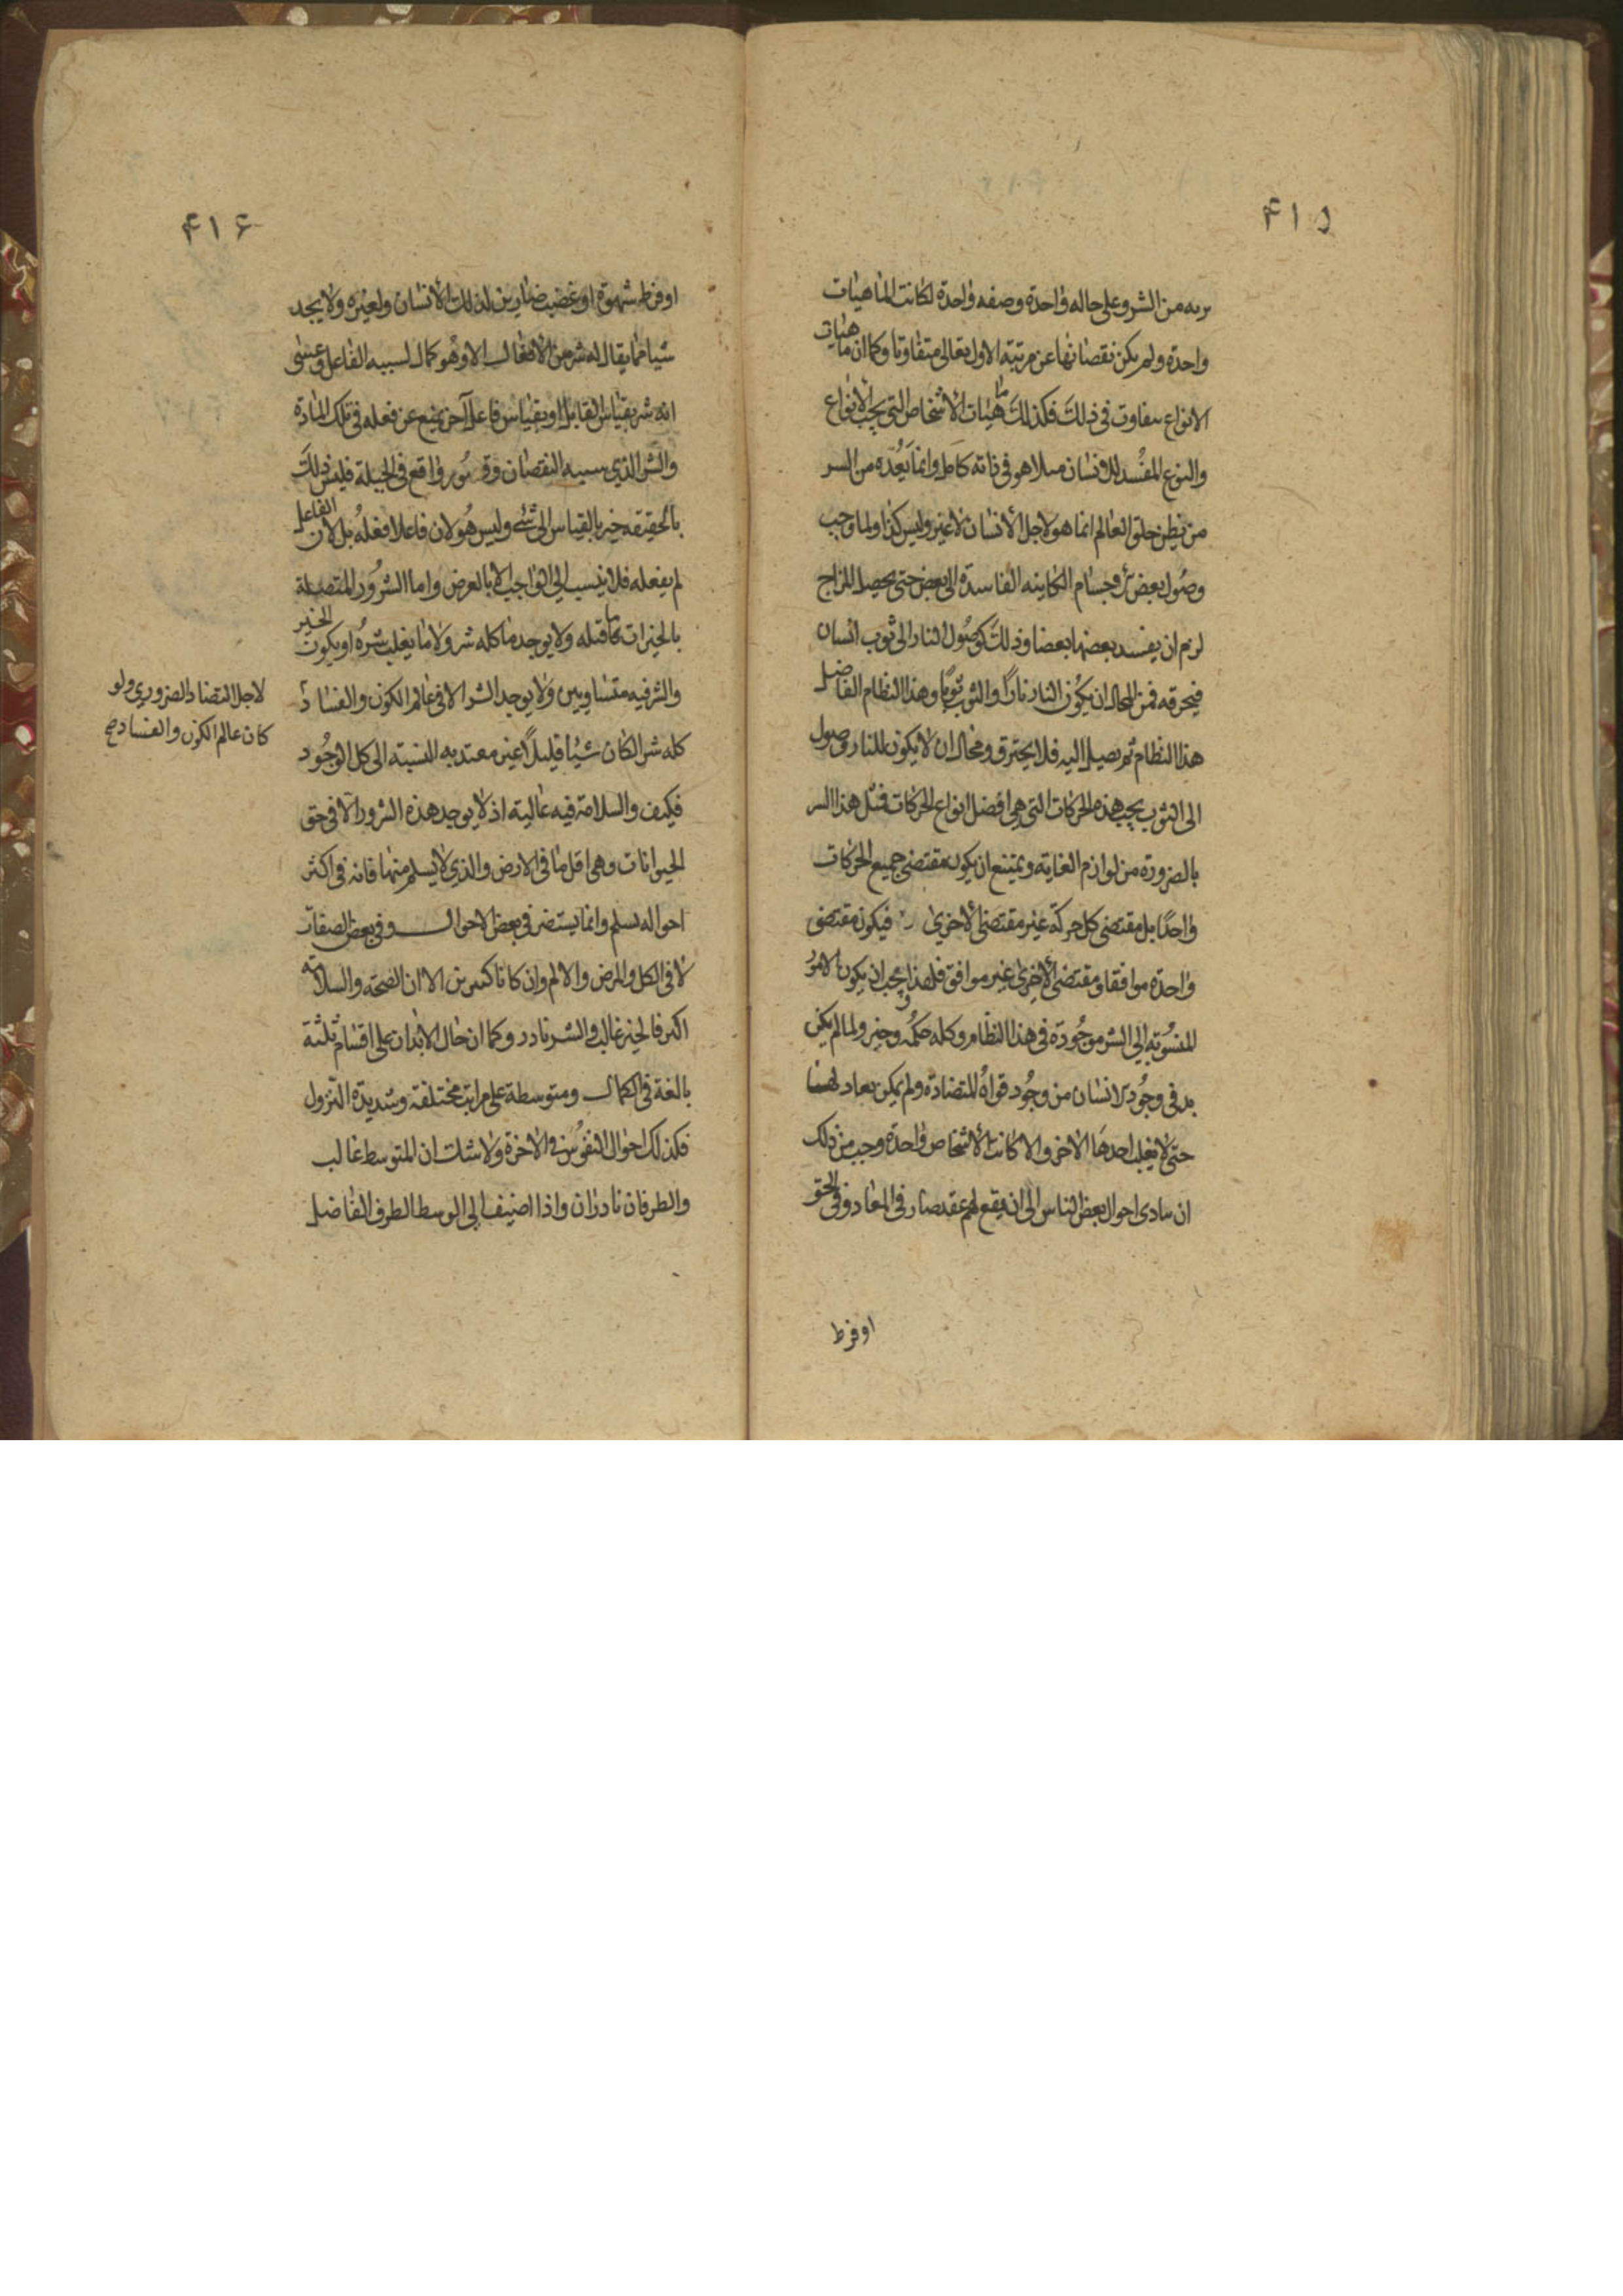 ۴۱۵
بريه من الشر وعلى حاله واحدة وصفه واحدة لكانت الماهيات
واحدة ولم يكن نقصانها عن مرتبة الاول تعالى متفاوتا وكما ان ماهيات
الانواع يتفاوت فى ذلك فكذلك ماهيات الأشخاص التي تحت الأنواع
والنوع المفسد للانسان مثلا هو في ذاته كامل وانما يعده من الشر
من يظن خلق العالم انما هو لاجل الأنسان لا غير وليس كذا ولما وجب
وصول بعض الاجسام الكاينه الفاسدة الى بعض حتى يحصل المزاج
لزم ان يفسد بعضها بعضا وذلك كوصول النار الى ثوب انسان
فيحرقه فمن المحال ان يكون النار نارا والثوب ثوبا وهذا النظام الفاضل
هذا النظام ثم يصل اليه فلا يحترق ومحال ان لا يكون للنار وصول
الى الثوب بحسب هذه الحركات التي هي افضل انواع الحركات فمثل هذا الشر
بالضرورة من لوازم الغاية ويمتنع ان يكون مقتضى جميع الحركات
واحدًا بل مقتضى كل حركة غير مقتضى الأخرى فيكون مقتضى
واحدة موافقا ومقتضى الأخرى غير موافق فلهذا يجب ان يكون الامور
المنسوبة إلي الشر موجودة فى هذا النظام وكله حكمة وخير ولما لم يكن
بد فى وجود الانسان من وجود قواه المتضادة ولم يمكن تعادلها
حتى لا يغلب احدها الاخر والا كانت الأشخاص واحدة وجب من ذلك
ان يتادى احوال بعض الناس الى ان يقع لهم عقد ضار فى المعاد وفى الحق
اوفرط
۴۱۶
اوفرط شهوة او غضب ضارين لذلك الأنسان ولغيره ولا يجد
شيا مما يقال له شر من الأفعال الا وهو كمال لسببه الفاعل وعسى
انه شر بقياس القابل او بقياس فاعل آخر يمنع عن فعله فى تلك المادة
والشر الذي سببه النقصان وقصور واقع فى الجبلة فليس ذلك
بالحقيقه خير بالقياس الى شئ وليس هو لان فاعلا فعله بل لان الفاعل
لم يفعله فلا ينسب إلى الواجب الا بالعرض واما الشرور المتصلة
بالخيرات كما قبله ولا يوجد ما كله شر ولا ما يغلب شره او يكون الخير
والشر فيه متساويين ولا يوجد الشر الا في عالم الكون والفساد
كله شر الكان شيئا قليلاً غير معتد به بالنسبة الى كل الوجود
فكيف والسلامة فيه غالبة اذ لا يوجد هذه الشرور الا فى حق
الحيوانات وهى اقل ما فى الارض والذي لا يسلم منها فانه فى اكثر
احواله يسلم وانما يستضر فى بعض الاحوال وفى بعض الصفات
لا فى الكل والمرض والالم وان كانا كثيرين الا ان الصحة والسلامة
اكثر فالخير غالب والشر نادر وكما ان حال الابدان على اقسام ثلثة
بالغة فى الكمال ومتوسطة على مراتب مختلفة وشديدة النزول
فكذلك احوال النفوس فى الأخرة ولا شك ان المتوسط غالب
والطرفان نادران واذا اضيف الى الوسط الطرف الفاضل
لاجل التضاد الضروري ولو
كان عالم الكون والفساد صح